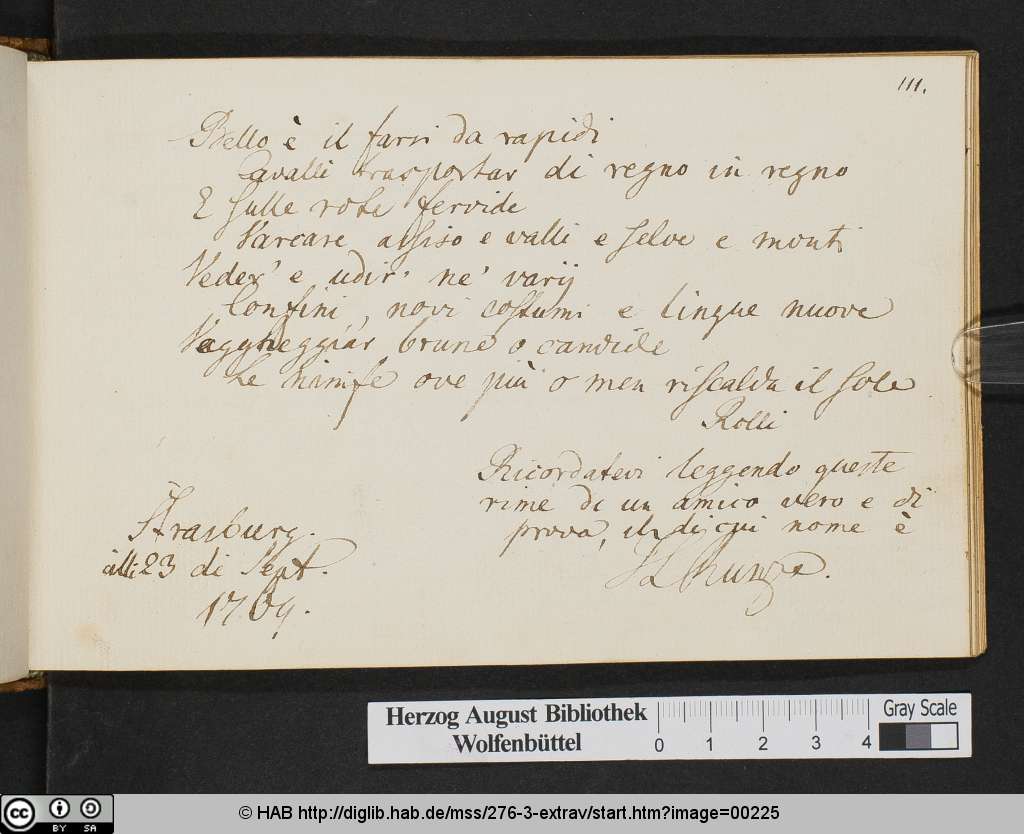 111.
Bello è il farsi da rapidi
Cavalli trasportar di regno in regno
E sulle rote fervide
Varcare assiso e valli e selve e monti
Veder' e udir' ne' varij
Confini, novi costumi e lingue nuove
Vagheggiar brune o candide
Le ninfe ove più o men riscalda il sole
Rolli
Ricordatevi leggendo queste
rime di un amico vero e di
prova, il di cui nome è
Strasburg.
alli 23 di Sept.
Herzog August Bibliothek
Wolfenbüttel
0 1 2 3 4
Gray Scale
cc BY SA
© HAB http://diglib.hab.de/mss/276-3-extrav/start.htm?image=00225